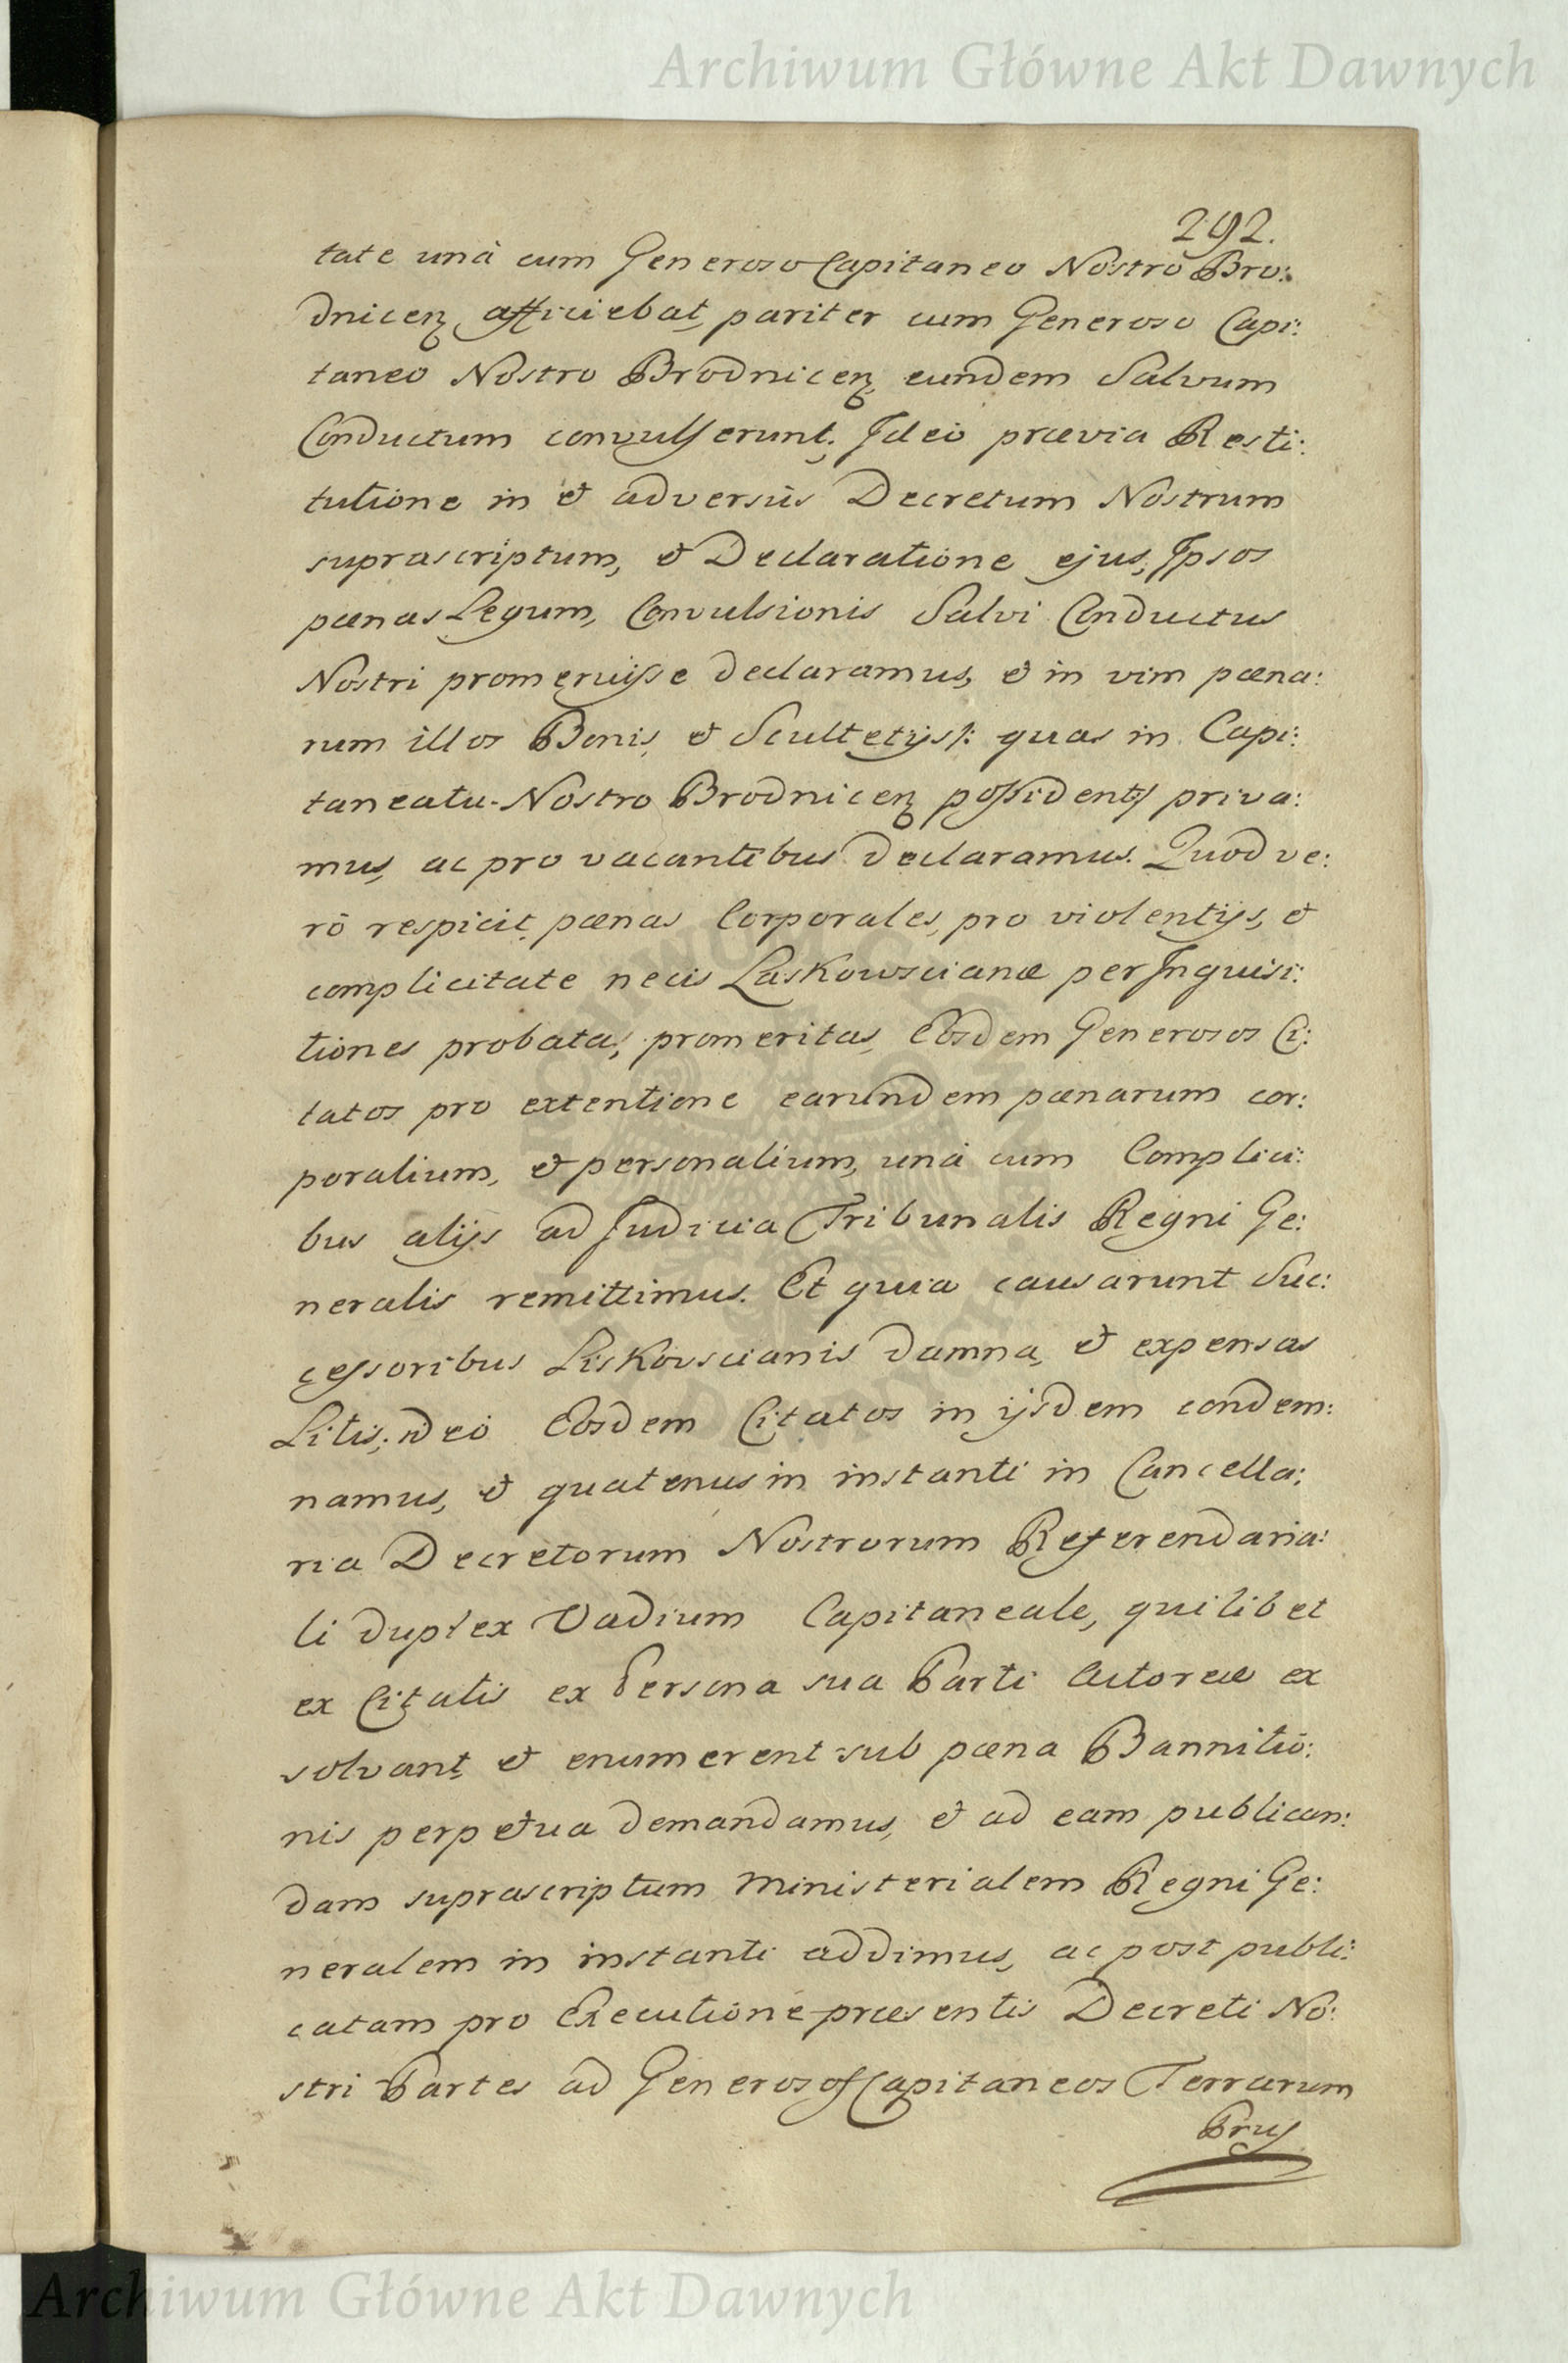 Archiwum Główne Akt Dawnych
292.
tate unà cum Generoso Capitaneo Nostro Bro:
dnicen afficiebat, pariter cum Generoso Capi:
taneo Nostro Brodnicen, eundem Salvum
Conductum convulserunt; Ideo prævia Resti:
tutione in et adversùs Decretum Nostrum
suprascriptum, et Declaratione ejus, Ipsos
pænas Legum, Convulsionis Salvi Conductus
Nostri promeruisse declaramus, et in vim pæna:
rum illos Bonis, et Scultetijs /: quas in Capi:
taneatu Nostro Brodnicen possident :/ priva:
mus, ac pro vacantibus declaramus. Quod ve:
rò respicit pænas Corporales, pro violentijs, et
complicitate necis Laskowscianæ per Inquisi:
tiones probata, promeritas, Eosdem Generosos Ci:
tatos pro extentione earundem pænarum cor:
poralium, et personalium, unà cum Complici:
bus alijs ad Judicia Tribunalis Regni Ge:
neralis remittimus. Et quia causarunt Suc:
cessoribus Liskovscianis damna, et expensas
Litis; ideo Eosdem Citatos in ijsdem condem:
namus, et quatenus in instanti in Cancella:
ria Decretorum Nostrorum Referendaria:
li duplex Vadium Capitaneale, quilibet
ex Citatis ex Persona sua Parti Actoreæ ex
solvant et enumerent sub pæna Bannitio:
nis perpetua demandamus, et ad eam publican:
dam suprascriptum Ministerialem Regni Ge:
neralem in instanti addimus, ac post publi:
catam pro Executione præsentis Decreti No:
stri Partes ad Generosos Capitaneos Terrarum
Prus
Archiwum Główne Akt Dawnych